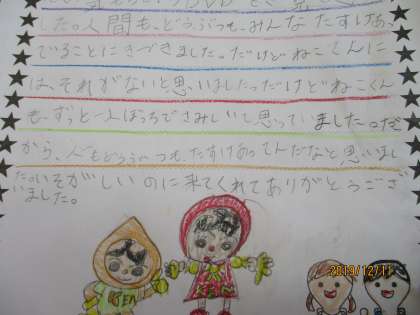 した。人間も、どうぶつも、みんなたすけあっ
でることにきづきました。だけどねこくんに
は、それがないと思いましたっだけどねこくん
も、ずっと一人ぼっちでさみしいと思っていましたっだ
から、人もどうぶつも、たすけあってんだなと思いまし
た。いそがしいのに来てくれてありがとうござ
いました。
2019/12/11